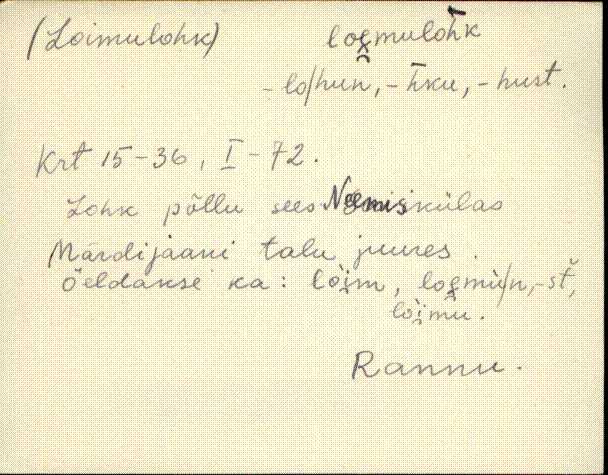 (Loimulohk) loemulohk
-lo/hun, -hku, -hust.
Krt 15-36, I-72.
Lohk põllu sees Neemisikülas
Mardijaani talu juures.
Öeldakse ka: lòim, loemù/n, -st,
lòimu.
Rannu.